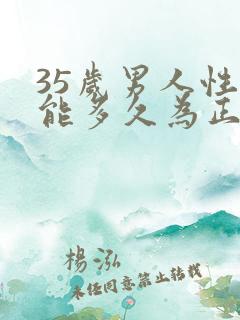 35歲男人性
能多久為正
楊泓
未經同意禁止轉載